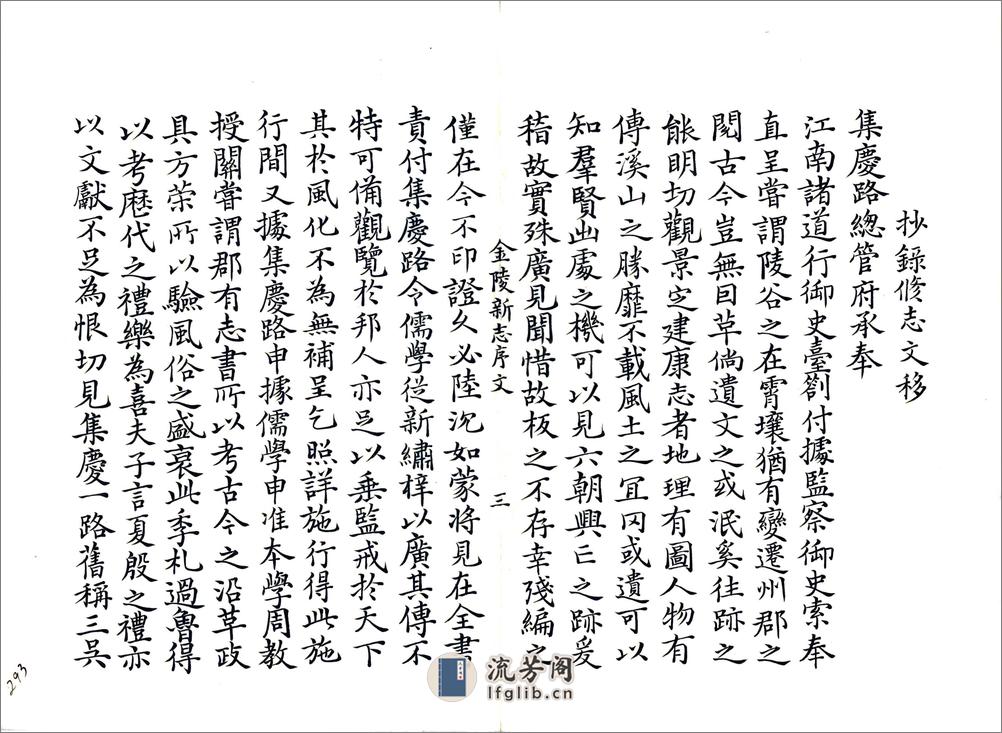 抄錄修志文移
集慶路總管府承奉
江南諸道行御史臺劄付據監察御史索奉
直呈嘗謂陵谷之在霄壤猶有變遷州郡之
閱古今豈無因革倘遺文之或泯奚往跡之
能明切觀景定建康志者地理有圖人物有
傳溪山之勝靡不載風土之宜罔或遺可以
知羣賢出處之機可以見六朝興亡之跡爰
稽故實殊廣見聞惜故板之不存幸殘編之
金陵新志序文
三
僅在今不印證久必陸沉如蒙將見在全書
責付集慶路令儒學從新繡梓以廣其傳不
特可備觀覽於邦人亦足以垂監戒於天下
其於風化不為無補呈乞照詳施行得此施
行間又據集慶路申據儒學申准本學周教
授關嘗謂郡有志書所以考古今之沿革政
具方策所以驗風俗之盛衰此季札過魯得
以考歷代之禮樂為喜夫子言夏殷之禮亦
以文獻不足為恨切見集慶一路舊稱三吳
293
流芳阁
lfglib.cn